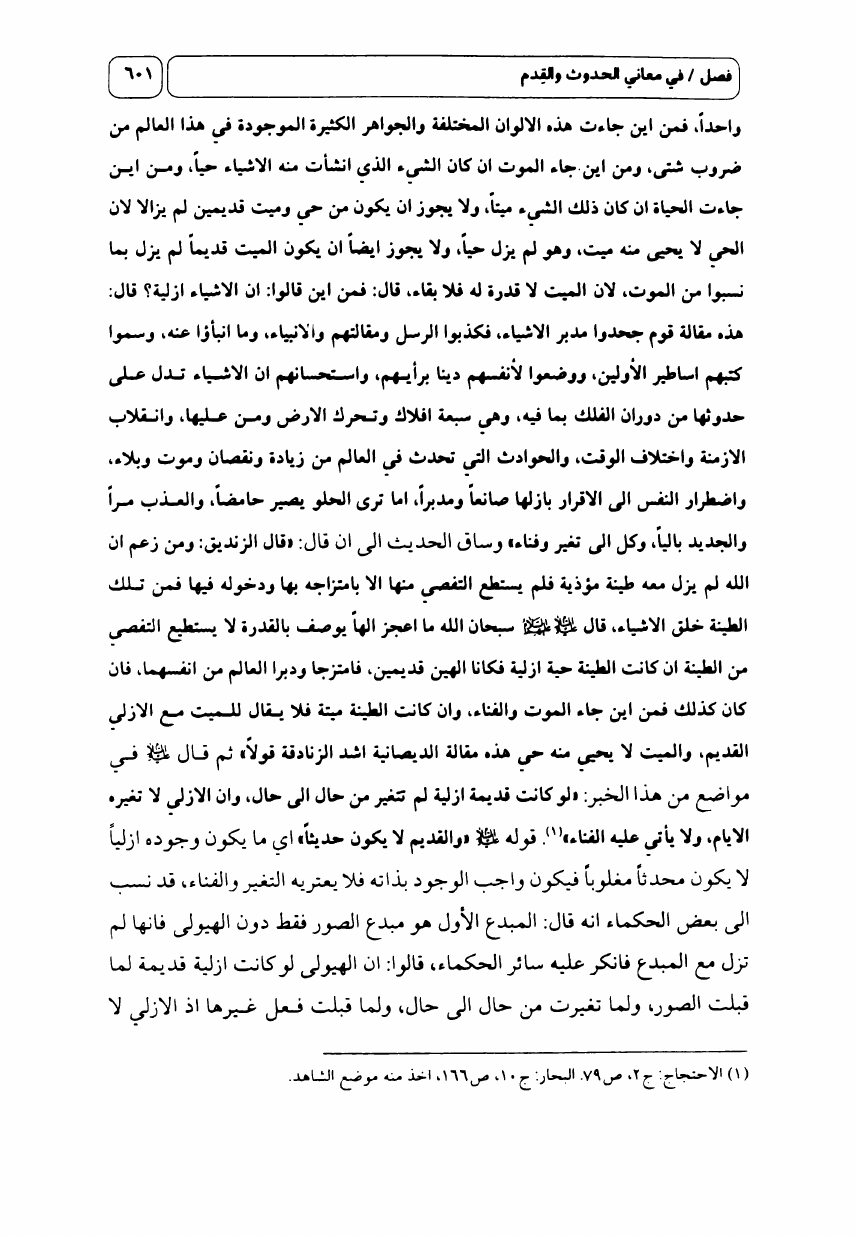 فصل / في معاني الحدوث والقِدم ٦٠١
واحداً، فمن اين جاءت هذه الالوان المختلفة والجواهر الكثيرة الموجودة في هذا العالم من
ضروب شتى، ومن اين جاء الموت ان كان الشيء الذي انشأت منه الاشياء حياً، ومـن ايـن
جاءت الحياة ان كان ذلك الشيء ميتاً، ولا يجوز ان يكون من حي وميت قديمين لم يزالا لان
الحي لا يحيى منه ميت، وهو لم يزل حياً، ولا يجوز ايضاً ان يكون الميت قديماً لم يزل بما
نسبوا من الموت، لان الميت لا قدرة له فلا بقاء، قال: فمن اين قالوا: ان الاشياء ازلية؟ قال:
هذه مقالة قوم جحدوا مدبر الاشياء، فكذبوا الرسل ومقالتهم والانبياء، وما انبأؤا عنه، وسموا
كتبهم اساطير الأولين، ووضعوا لأنفسهم دينا برأيـهم، واسـتحسانهم ان الاشـياء تـدل عـلى
حدوثها من دوران الفلك بما فيه، وهي سبعة افلاك وتـحرك الارض ومـن عـليها، وانـقلاب
الازمنة واختلاف الوقت، والحوادث التي تحدث في العالم من زيادة ونقصان وموت وبلاء،
واضطرار النفس الى الاقرار بازلها صانعاً ومدبراً، اما ترى الحلو يصير حامضاً، والعـذب مـراً
والجديد بالياً، وكل الى تغير وفناء» وساق الحديث الى ان قال: «قال الزنديق: ومن زعم ان
الله لم يزل معه طينة مؤذية فلم يستطع التفصي منها الا بامتزاجه بها ودخوله فيها فمن تـلك
الطينة خلق الاشياء، قال ﷺ ﷺ سبحان الله ما اعجز الهاً يوصف بالقدرة لا يستطيع التفصي
من الطينة ان كانت الطينة حية ازلية فكانا الهين قديمين، فامتزجا ودبرا العالم من انفسهما، فان
كان كذلك فمن اين جاء الموت والفناء، وان كانت الطينة ميتة فلا يـقال للـميت مـع الازلي
القديم، والميت لا يحيي منه حي هذه مقالة الديصانية اشد الزنادقة قولاً» ثم قـال ﷺ فـي
مواضع من هذا الخبر: «لو كانت قديمة ازلية لم تتغير من حال الى حال، وان الازلي لا تغيره
الايام، ولا يأتي عليه الفناء»(١). قوله ﷺ «والقديم لا يكون حديثاً» اي ما يكون وجوده ازلياً
لا يكون محدثاً مغلوباً فيكون واجب الوجود بذاته فلا يعتريه التغير والفناء، قد نسب
الى بعض الحكماء انه قال: المبدع الأول هو مبدع الصور فقط دون الهيولى فانها لم
تزل مع المبدع فانكر عليه سائر الحكماء، قالوا: ان الهيولى لو كانت ازلية قديمة لما
قبلت الصور، ولما تغيرت من حال الى حال، ولما قبلت فـعل غـيرها اذ الازلي لا
(١) الاحتجاج: ج٢، ص٧٩. البحار: ج١٠، ص١٦٦، اخذ منه موضع الشاهد.